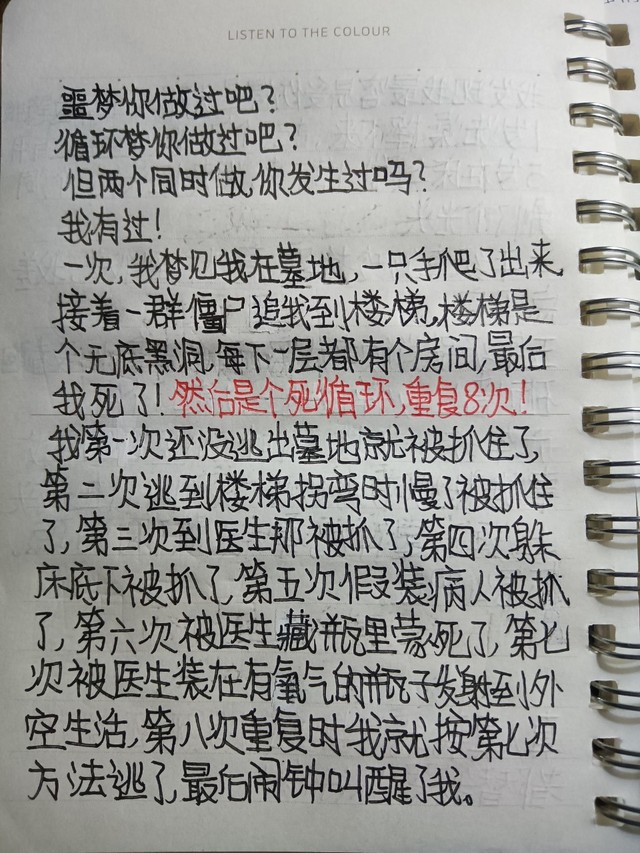 LISTEN TO THE COLOUR
噩梦你做过吧?
循环梦你做过吧?
但两个同时做,你发生过吗?
我有过!
一次,我梦见我在墓地,一只手爬了出来,
接着一群僵尸追我到楼梯,楼梯是
个无底黑洞,每下一层都有个房间,最后
我死了!然后是个死循环,重复8次!
我第一次还没逃出墓地就被抓住了,
第二次逃到楼梯拐弯时慢了被抓住
了,第三次到医生那被抓了,第四次躲
床底下被抓了,第五次假装病人被抓
了,第六次被医生藏瓶里蒙死了,第七
次被医生装在有氧气的瓶子发射到外
空生活,第八次重复时我就按第七次
方法逃了,最后闹钟叫醒了我。